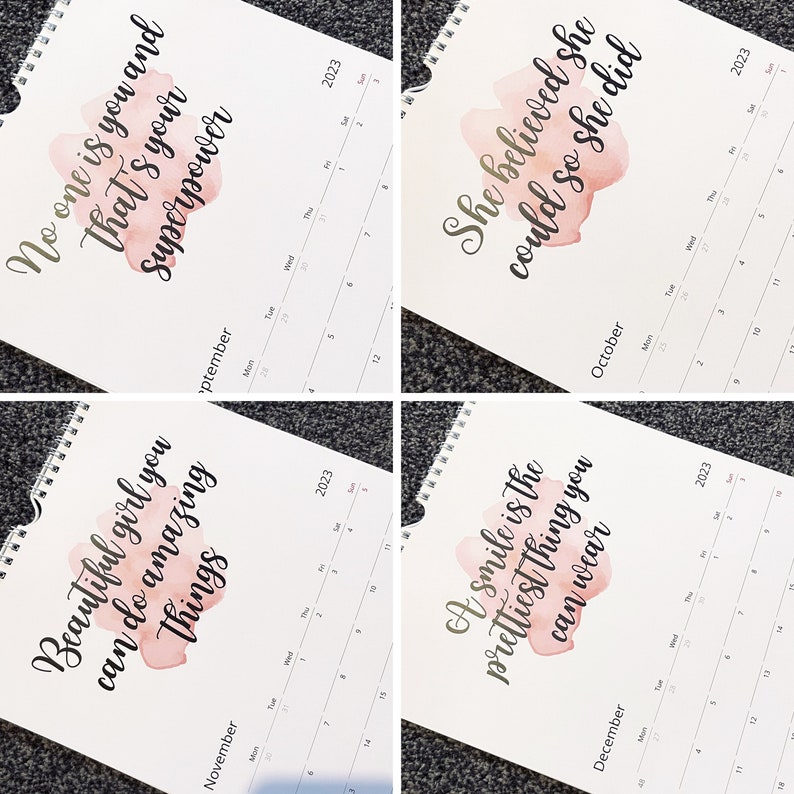 No one is you and
that's your
superpower
eptember
2023
Mon Tue Wed Thu Fri Sat Sun
28 29 30 31 1 2 3
4 5 6 7 8
12
She believed she
could so she did
October
2023
Mon Tue Wed Thu Fri Sat Sun
25 26 27 28 29 30 1
2 3 4 5 6 7
9 10 11 12
Beautiful girl you
can do amazing
things
November
2023
Mon Tue Wed Thu Fri Sat Sun
30 31 1 2 3 4 5
6 7 8 9 10 11
14 15
A smile is the
prettiest thing you
can wear
December
2023
Mon Tue Wed Thu Fri Sat Sun
48 27 28 29 30 1 2 3
4 5 6 7 8 9 10
11 12 13 14 15